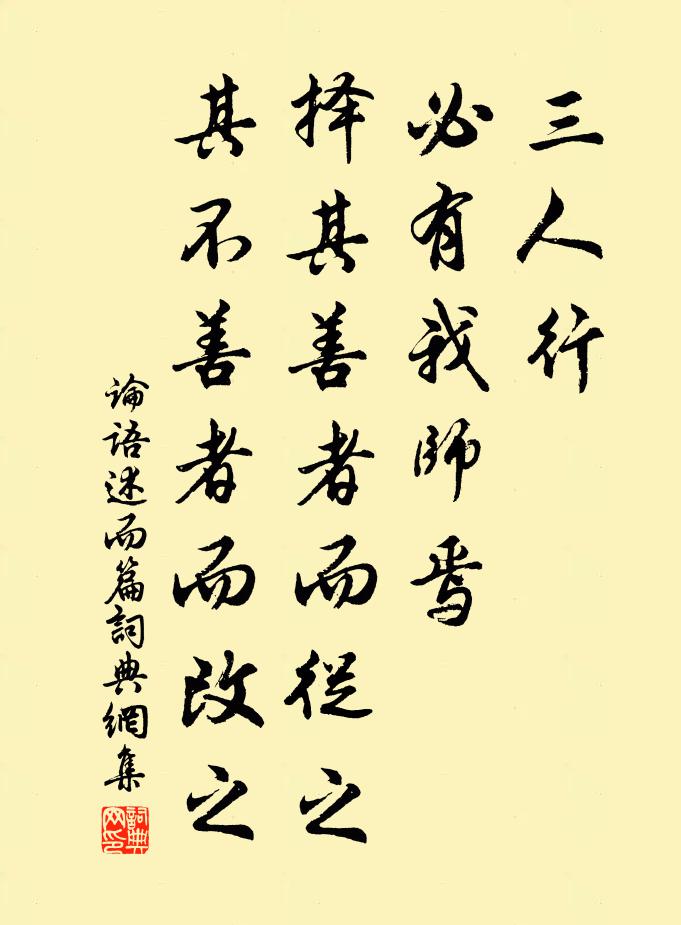 三人行
必有我師焉
择其善者而從之
其不善者而改之
論語述而篇詞典網集
詞典
网印